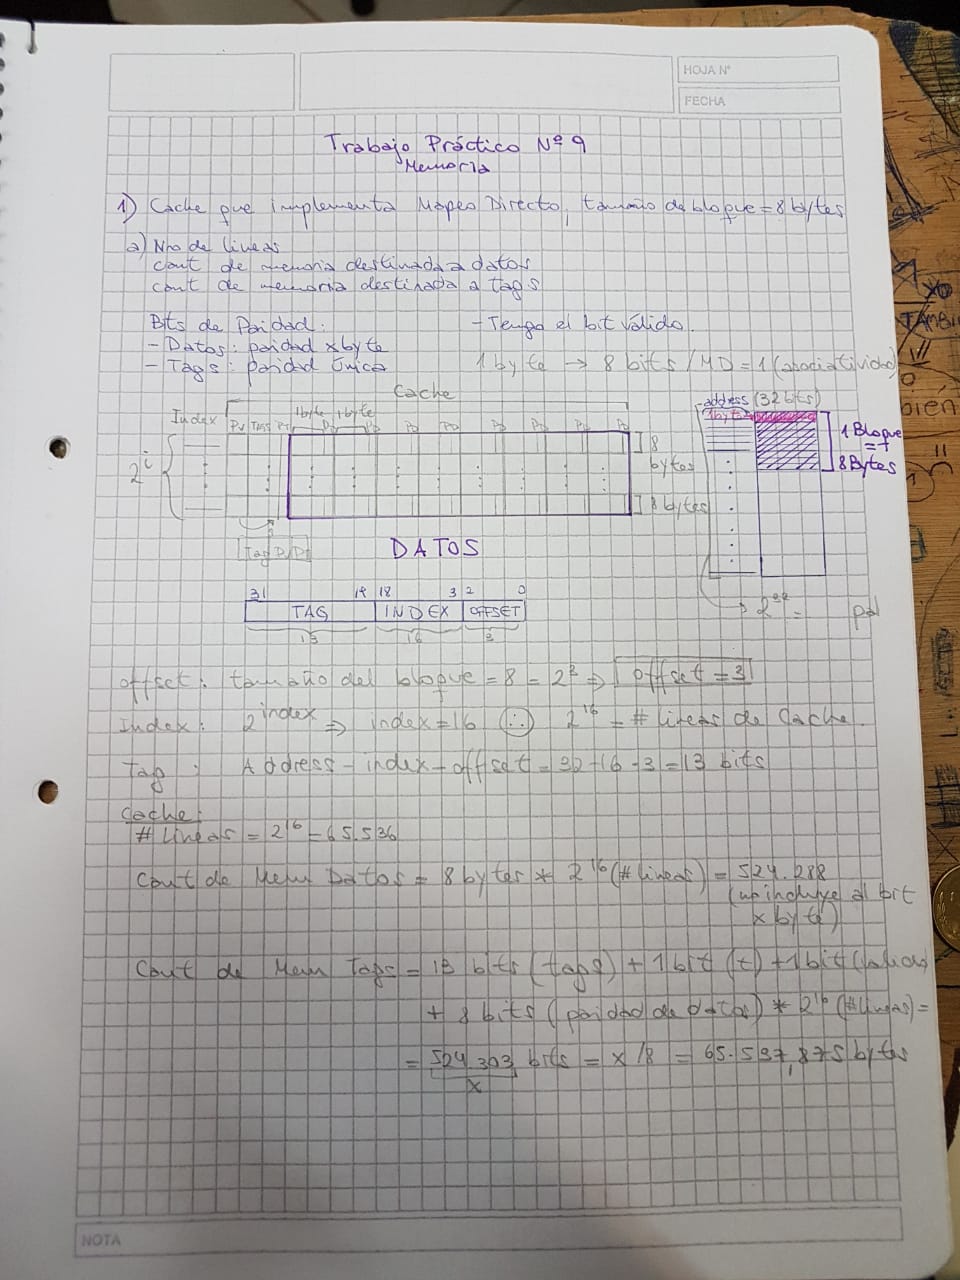 HOJA N°
FECHA
Trabajo Práctico Nº 9
Memoria
1) Cache que implementa Mapeo Directo, tamaño de bloque = 8 bytes
a) Nro de lineas
cant de memoria destinada a datos
cant de memoria destinada a tags
Bits de Paridad:
- Datos: paridad x byte
- Tags: paridad única
- Tengo el bit válido.
1 byte → 8 bits / MD = 1 (asociatividad)
Cache
address (32 bits)
Index
1byte 1byte
1byte
Pv TAGS Pt PD PD PD PD PD PD PD PD
2^i
8 bytes
8 bytes
1 Bloque = 8 Bytes
Tag
DATOS
2^32 =
31 19 18 3 2 0
TAG INDEX OFFSET
13 16 3
offset: tamaño del bloque = 8 = 2^3 ⇒ offset = 3
Index: 2^index ⇒ index = 16 ∴ 2^16 = # lineas de Cache.
Tag: Address - index - offset = 32 - 16 - 3 = 13 bits
Cache:
# Lineas = 2^16 = 65.536
Cant de Mem Datos = 8 bytes * 2^16 (# lineas) = 524.288
(no incluye el bit
x byte)
Cant de Mem Tags = 13 bits (tags) + 1 bit (t) + 1 bit (valido)
+ 8 bits (paridad de datos) * 2^16 (# lineas) =
= 524.303 bits = x / 8 = 65.537,875 bytes
x
NOTA
TAMBI
bien